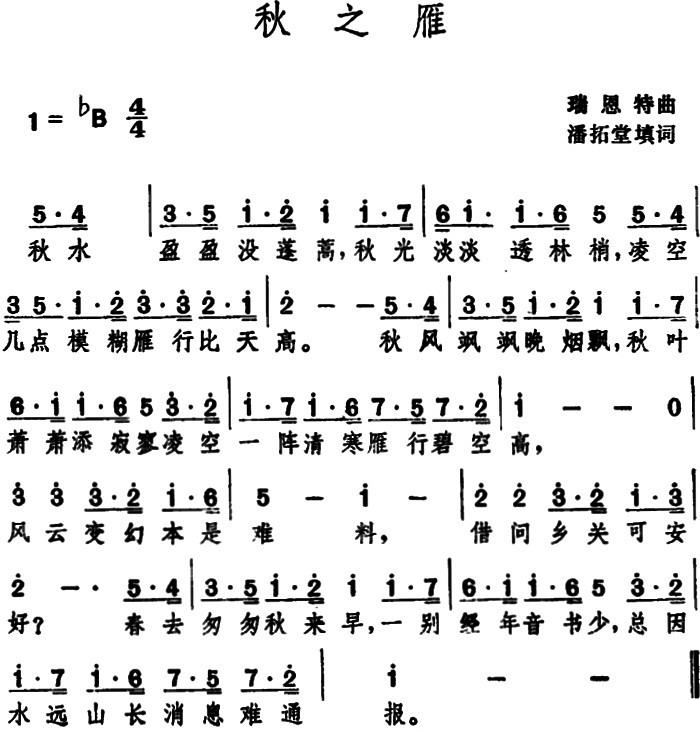 秋之雁
1=♭B 4/4
瑞恩特曲
潘拓堂填词
5·4 | 3·5 i·2̇ i i·7 | 6i· i·6 5 5·4 |
秋水 盈盈没蓬蒿,秋光淡淡透林梢,凌空
3 5·i·2̇ 3̇·3̇ 2̇·i | 2̇ - - 5·4 | 3·5 i·2̇ i i·7 |
几点模糊雁行比天高。 秋风飒飒晚烟飘,秋叶
6·i i·6 5 3̇·2̇ | i·7 i·6 7·5 7·2̇ | i - - 0
萧萧添寂寥凌空一阵清寒雁行碧空高,
3̇ 3̇ 3̇·2̇ i·6 | 5 - i - | 2̇ 2̇ 3̇·2̇ i·3̇ |
风云变幻本是难料, 借问乡关可安
2̇ - · 5·4 | 3·5 i·2̇ i i·7 | 6·i i·6 5 3̇·2̇ |
好? 春去匆匆秋来早,一别经年音书少,总因
i·7 i·6 7·5 7·2̇ | i - - ‖
水远山长消息难通 报。